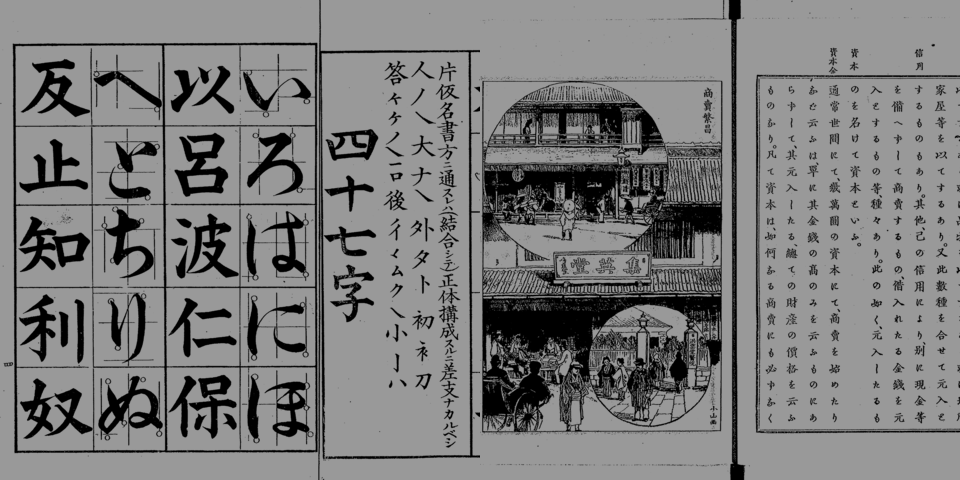 いろはにほ
以呂波仁保
へとちりぬ
反止知利奴
片仮名書方ニ通スレハ結合シテ正体構成スルニ差支ナカルベシ
人ノ乀大ナ乀外タト初ネ刀
四十七字
商賣繁昌
集英堂
小山画
信用
資本
資本金
家屋等を以てするあり。又此數種を合せて元入と
するものもあり。其他、己の信用により、別に現金等
を備へずして商賣するもの、借入れたる金錢を元
入とするもの等、種々あり。此の如く、元入したるも
のを名けて資本といふ。
通常世間にて、幾萬圓の資本にて、商賣を始めたり
など云ふは、單に其金錢の高のみを云ふものにあ
らずして、其元入したる、總ての財産の價格を云ふ
ものなり。凡て資本は、如何なる商賣にも必ずなく